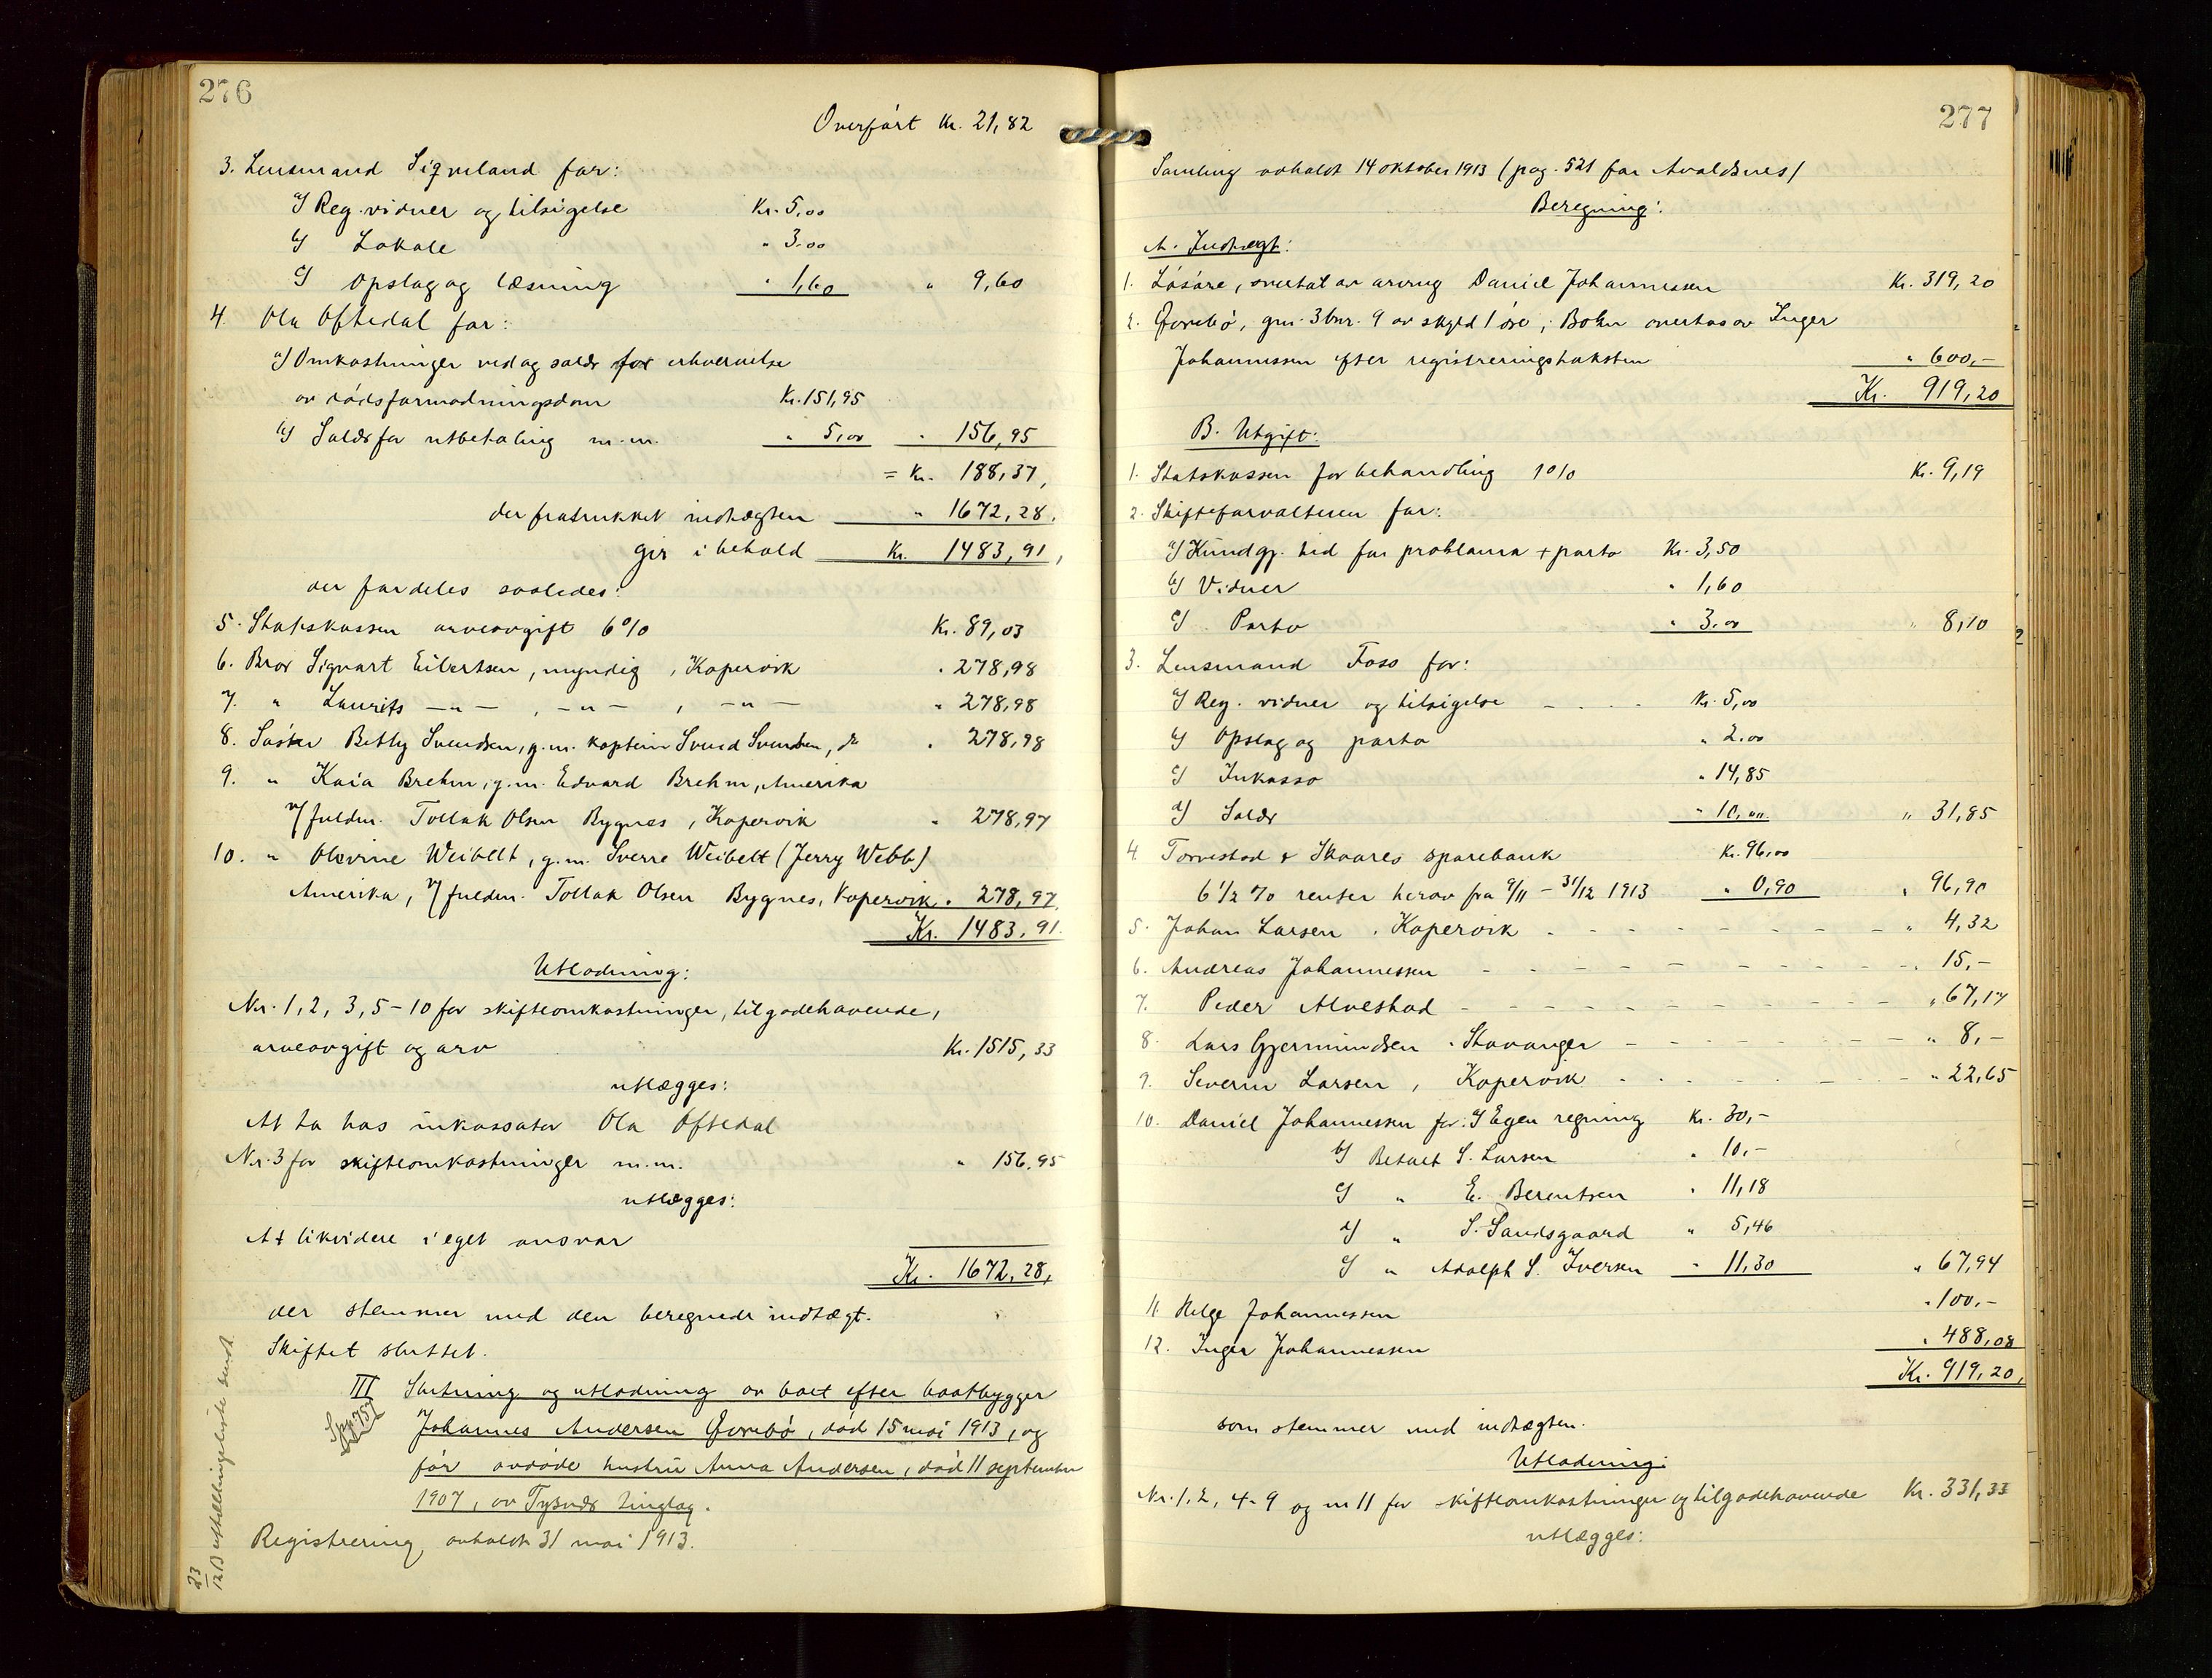 276
Overført Kr. 21,82
3. Lensmand Signeland for:
a/ Reg. vidner og tilsigelse Kr. 5,00
b/ Lokale " 3.00
c/ Opslag og læsning " 1,60 " 9,60
4. Ola Oftedal for:
a/ Omkostninger ved og salær for erhvervelse
av dødsformodningsdom Kr. 151,95
b/ Salær for utbetaling m.m. " 5,00 " 156,95
= Kr. 188,37,
der fratrukket indtægten " 1672,28.
gir i behold Kr. 1483,91,
der fordeles saaledes:
5. Statskassen arveavgift 6% Kr. 89,03
6. Bror Sigvart Eilertsen, myndig, Kopervik " 278,98
7. " Laurits —"— , —"— , —"— " 278,98
8. Søster Betty Svendsen, g.m. kaptein Svend Svendsen, do " 278,98
9. " Kaia Brehm, g.m. Edvard Brehm, Amerika
v/ fuldm. Tollak Olsen Bygnes, Kopervik " 278,97
10. " Olevine Weibell, g.m. Sverre Weibell (Jerry Webb)
Amerika, v/ fuldm. Tollak Olsen Bygnes, Kopervik " 278,97
Kr. 1483,91.
Utlodning:
Nr. 1, 2, 3, 5-10 for skifteomkostninger, tilgodehavende,
arveavgift og arv Kr. 1515,33
utlægges:
At ta hos inkassator Ola Oftedal
Nr. 3 for skifteomkostninger m.m. " 156,95
utlægges:
At likvidere i eget ansvar
Kr. 1672,28,
der stemmer med den beregnede indtægt.
Skiftet sluttet.
III Slutning og utlodning av boet efter baatbygger
Johannes Andersen Gorebø, død 15 mai 1913, og
før avdøde hustru Anna Andersen, død 11 september
1907, av Tysvær tinglag.
Registrering, avholdt 31 mai 1913.
277
Samling avholdt 14 oktober 1913 (pag. 521 for Avaldsnes)
Beregning:
A. Indtægt:
1. Løsøre, overtat av arving Daniel Johannessen Kr. 319,20
2. Gorebø, gnr. 3 bnr. 9 av skyld 1 øre, i Bokn overtas av Inger
Johannessen efter registreringstaksten " 600,-
Kr. 919,20
B. Utgift:
1. Statskassen for behandling 1% Kr. 9,19
2. Skifteforvalteren for:
a/ Kundgj. tid for proklama + porto Kr. 3,50
b/ Vidner " 1,60
c/ Porto " 3.00 " 8,10
3. Lensmand Foss for:
a/ Reg. vidner og tilsigelse - - - - Kr. 5,00
b/ Opslag og porto " 2.00
c/ Inkasso " 14,85
d/ Salær " 10,00 " 31,85
4. Torvestad & Skaares sparebank Kr. 96,00
6 1/2 % renter herav fra 9/11 – 31/12 1913 " 0,90 " 96,90
5. Johan Larsen, Kopervik " 4,32
6. Andreas Johannessen " 15,-
7. Peder Alvestad " 67,17
8. Lars Gjermundsen, Stavanger " 8,-
9. Severin Larsen, Kopervik " 22,65
10. Daniel Johannessen for: a/ Egen regning Kr. 30,-
b/ Betalt S. Larsen " 10,-
c/ " E. Berentsen " 11,18
d/ " S. Sandsgaard " 5,46
e/ " Adolph S. Iversen " 11,30 " 67,94
11. Helge Johannessen " 100,-
12. Inger Johannessen " 488,08
Kr. 919,20,
som stemmer med indtægten.
Utlodning:
Nr. 1, 2, 4-9 og nr 11 for skifteomkostninger og tilgodehavende Kr. 331,33
utlægges: